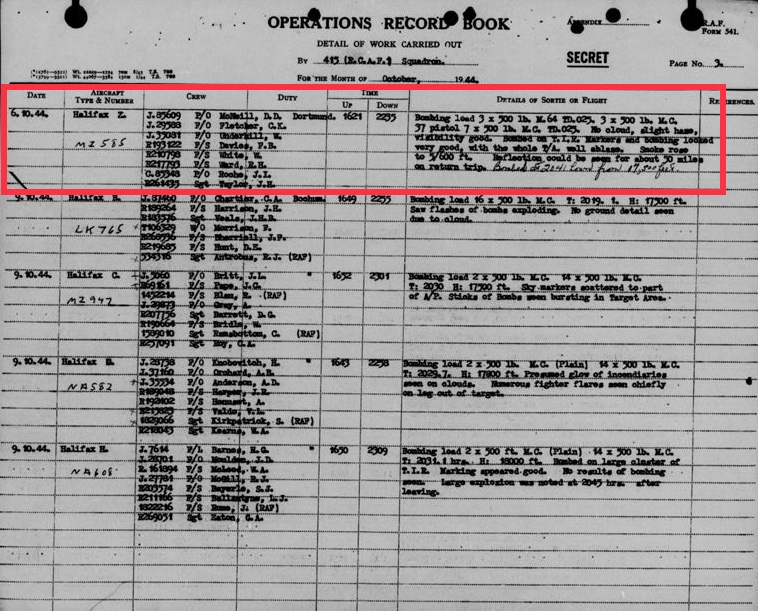 OPERATIONS RECORD BOOK
APPENDIX
R.A.F.
FORM 541.
DETAIL OF WORK CARRIED OUT
SECRET
BY 415 (R.C.A.F.) Squadron.
PAGE No. 3.
FOR THE MONTH OF October, 1944.
DATE AIRCRAFT TYPE & NUMBER CREW DUTY TIME UP DOWN DETAILS OF SORTIE OR FLIGHT REFERENCES.
6.10.44. Halifax Z. J.85609 P/O McNeill, D.D. Dortmund. 1621 2235 Bombing load 3 x 500 lb. M.64 TD.025. 3 x 500 lb. M.C.
J.29583 F/O Fletcher, C.K. 37 pistol 7 x 500 lb. M.C. TD.025. No cloud, slight haze,
J.35081 P/O Underhill, W. visibility good. Bombed on T.I.R. Markers and bombing looked
MZ585 R193122 F/S Davies, F.B. very good, with the whole T/A. well ablaze. Smoke rose
R210798 F/S White, W. to 5/600 ft. Reflection could be seen for about 50 miles
R217793 F/S Ward, R.H. on return trip. Bombed at 2041 hours from 17,500 feet.
C.85348 P/O Roche, J.L.
R261435 Sgt Taylor, J.H.
9.10.44. Halifax B. J.87460 P/O Chartier, C.A. Bochum. 1649 2255 Bombing load 16 x 500 lb. M.C. T: 2019.1. H: 17500 ft.
R189264 F/S Harrison, J.H. Saw flashes of bombs exploding. No ground detail seen
R183576 Sgt Veale, J.H.B. due to cloud.
LK765 W/O Morrison, F.
F/S Sherrill, J.F.
R219685 F/S Hunt, D.E.
Sgt Antrobus, R.J. (RAF)
9.10.44. Halifax C. J.5060 F/O Britt, J.L. " 1652 2301 Bombing load 2 x 500 lb. M.C. 14 x 500 lb. M.C.
R69161 F/S Pape, J.G. T: 2030 H: 17500 ft. Sky markers scattered to part
1452214 F/S (RAF) of A/P. Sticks of Bombs seen bursting in Target Area.
MZ947 J.39873 F/O Gray, A.
R207756 Sgt Barrett, D.G.
R190664 F/S Bridle, W.
1589010 Sgt Ramsbottom, C. (RAF)
R257091 Sgt Hoy, C.A.
9.10.44. Halifax D. J.28738 F/O Knobovitch, H. " 1643 2258 Bombing load 2 x 500 lb. M.C. (Plain) 14 x 500 lb. M.C.
J.37160 F/O Orchard, A.R. T: 2029.7. H: 17800 ft. Presumed glow of incendiaries
J.35534 F/O Anderson, A.D. seen on clouds. Numerous fighter flares seen chiefly
NA582 R189048 F/S Harper, J.R. on leg out of target.
R192402 F/S
R213823 F/S
1829066 Sgt Kirkpatrick, S. (RAF)
R218043 Sgt Kearns, W.A.
9.10.44. Halifax H. J.7614 F/L Barnes, H.G. " 1650 2309 Bombing load 2 x 500 lb. M.C. (Plain) 14 x 500 lb. M.C.
J.28701 F/O J.D. T: 2031.1 hrs. H: 18000 ft. Bombed on large cluster of
NA608 R.161894 F/S McLeod, W.A. T.I.R. Marking appeared good. No results of bombing
J.27781 F/O McGill, R.J. seen. Large explosion was noted at 2045 hrs. after
R203574 F/S S.J. leaving.
R211166 F/S Ballantyne, L.J.
1822216 F/S Ross, J. (RAF)
R269051 Sgt Eaton, G.A.